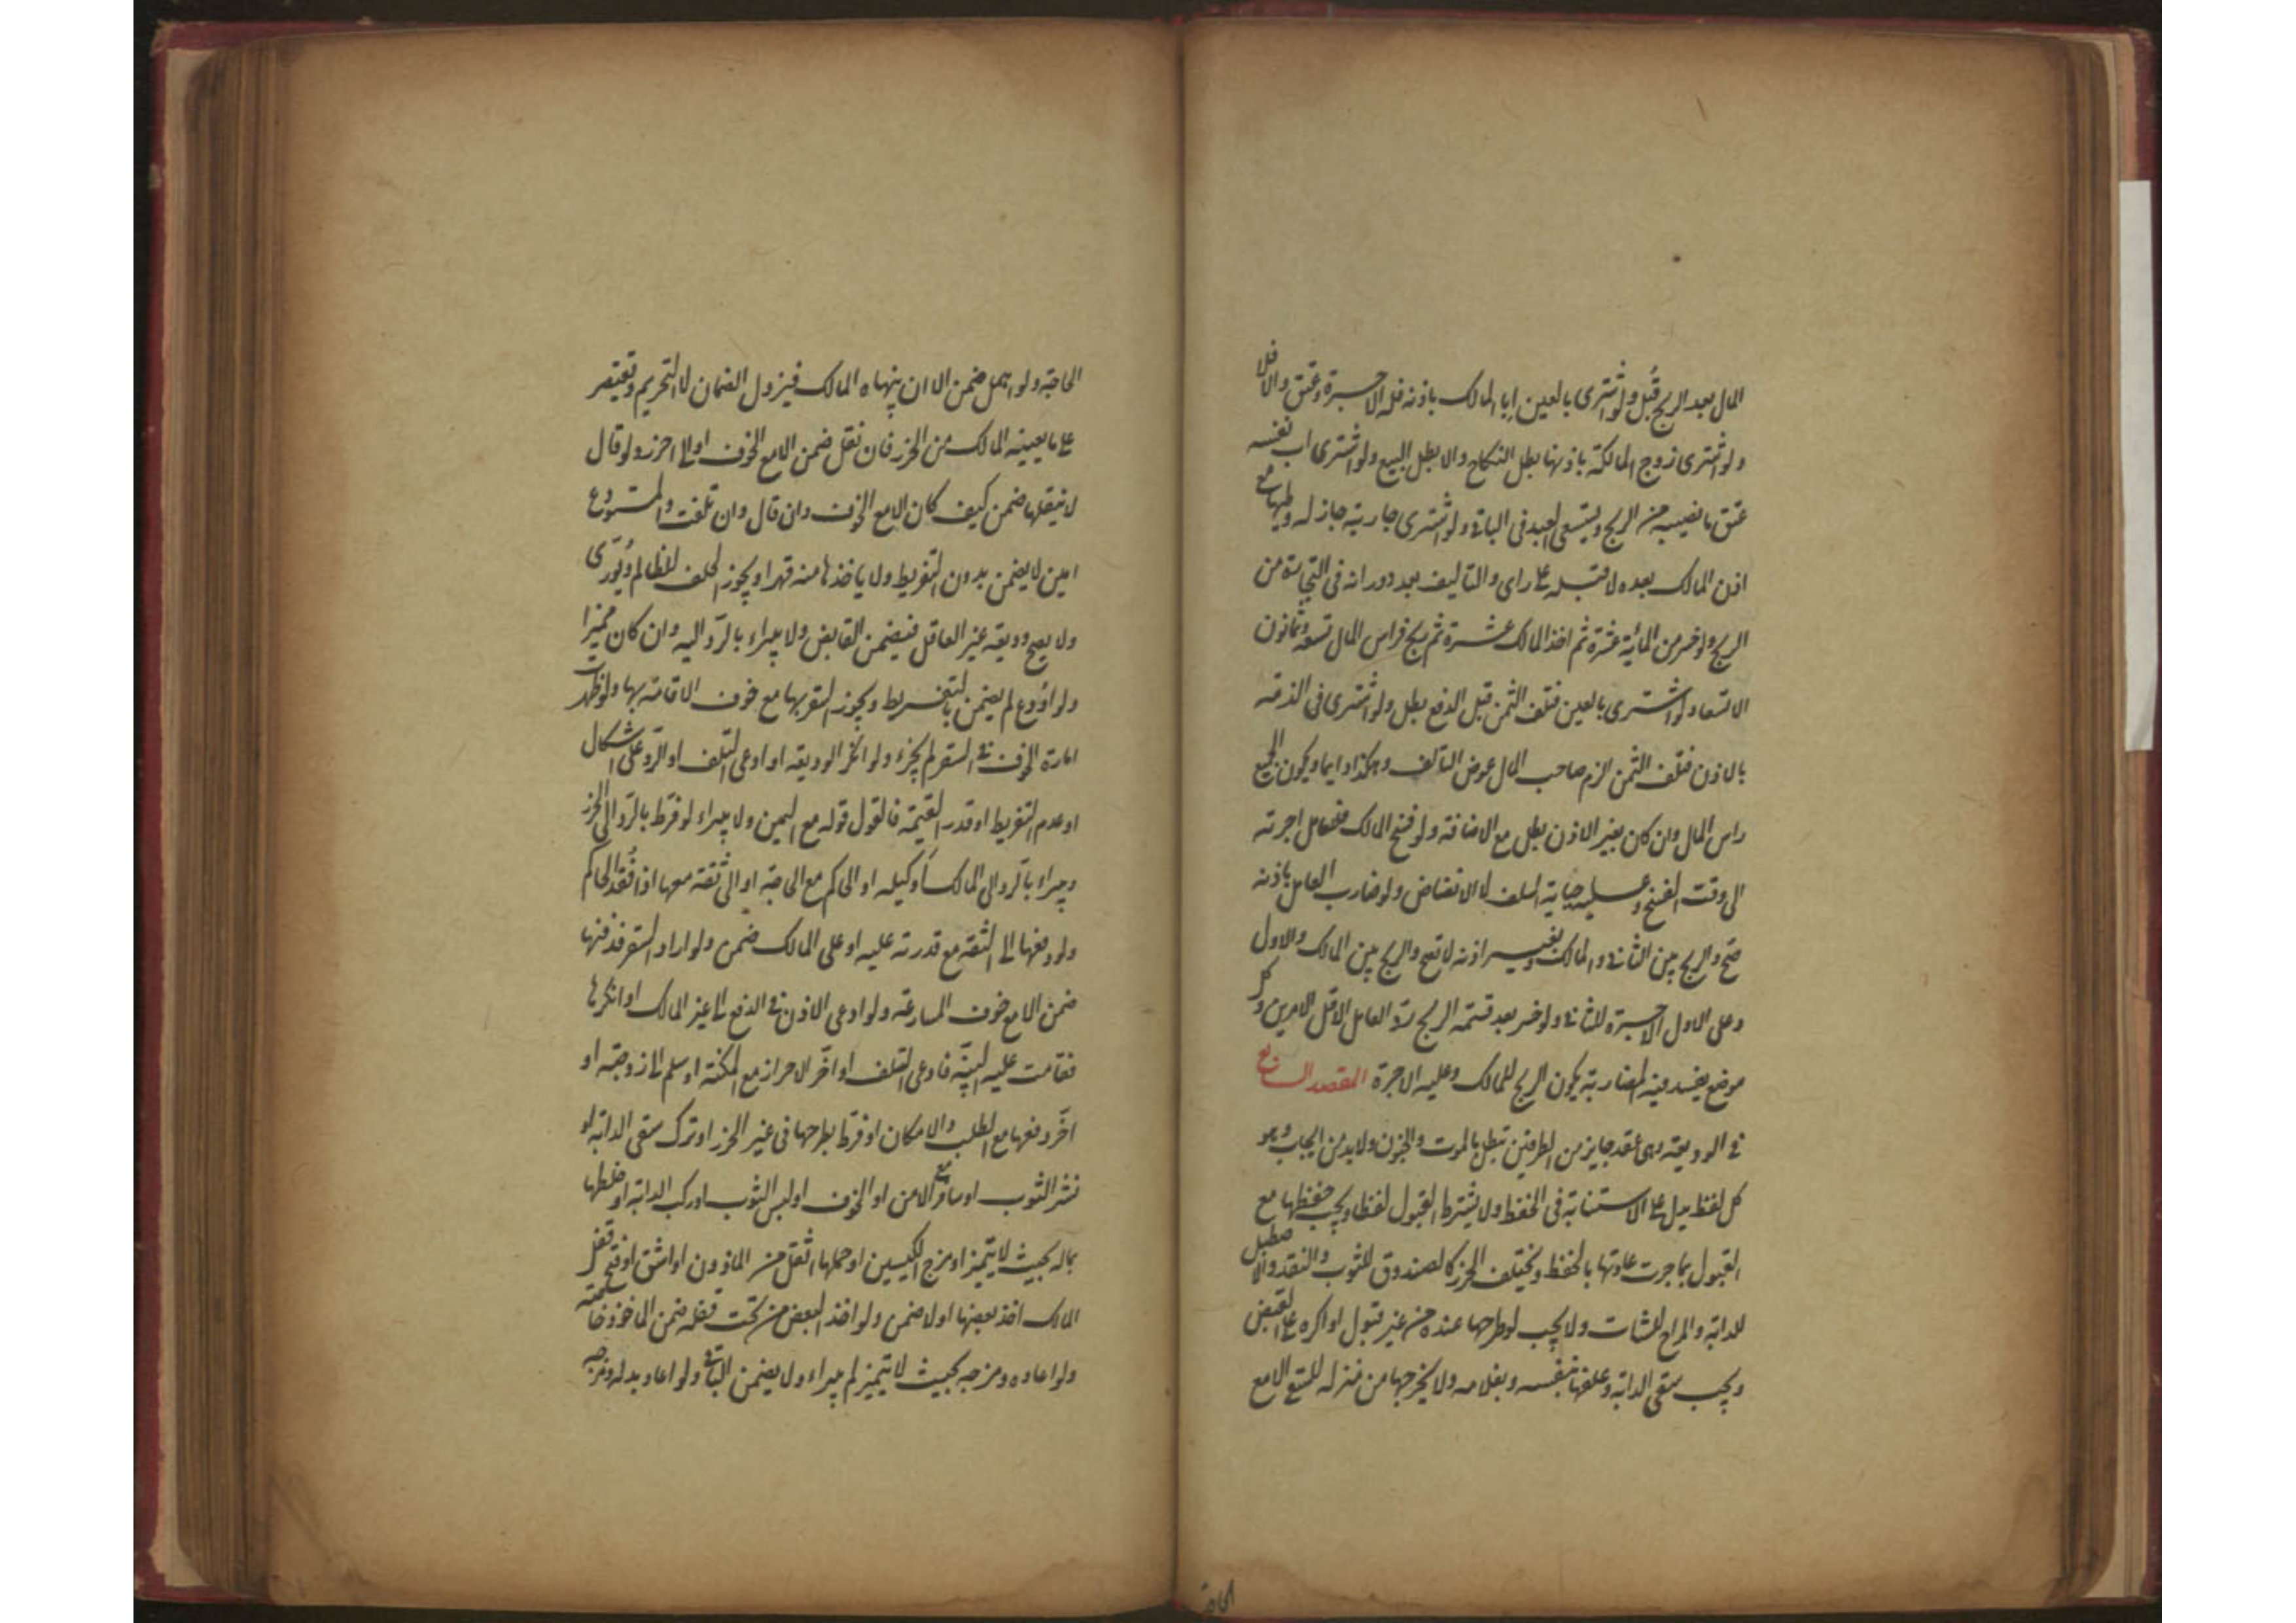 المال بعد الربح قُبل ولو اشترى بالعين ابا المالك باذنه فله الاجرة وعتق والا فلا
ولو اشترى زوج المالكة باذنها بطل النكاح والا بطل البيع ولو اشترى اب نفسه
عتق ما نصيبه من الربح ويستسعى العبد فى الباقى ولو اشترى جارية جاز له وطيها مع
اذن المالك بعده لا قبله على راى والتالف بعد دورانه فى التجارة من
الربح ولو خسر من المائة عشرة ثم اخذ المالك عشرة ثم ربح فراس المال تسعة وثمانون
الا تسعا ولو اشترى بالعين فتلف الثمن قبل الدفع بطل ولو اشترى فى الذمة
بالاذن فتلف الثمن الزم صاحب المال عوض التالف وهكذا دايما ويكون الجميع
راس المال وان كان بغير الاذن بطل مع الاضافة ولو فسخ المالك فللعامل اجرته
الى وقت الفسخ وعليه جباية السلف لا الانضاض ولو ضارب العامل باذنه
صح والربح بين الثانى والمالك وبغير اذنه لا تصح والربح بين المالك والاول
وعلى الاول الاجرة للثانى ولو خسر بعد قسمة الربح ردّ العامل الاقل الامرين وكل
موضع يفسد فيه المضاربة يكون الربح للمالك وعليه الاجرة المقصد السابع
فى الوديعة وهى عقد جايز من الطرفين تبطل بالموت والجنون ولا بد من ايجاب وهو
كل لفظ يدل على الاستنابة فى الحفظ ولا يشترط القبول لفظا ويجب حفظها مع
القبول بما جرت عادتها بالحفظ ويختلف الحرز كالصندوق للثوب والنقد والاصطبل
للدابة والمراح للشات ولا يجب لو طرحها عنده من غير قبول او اكره على القبض
ويجب سقى الدابة وعلفها بنفسه وبغلامه ولا يخرجها من منزله للسقى الا مع
الحاجة
الحاجة ولو اهمل ضمن الا ان ينهاه المالك فيزول الضمان لا التحريم وتقتصر
على ما يعينه المالك من الحرز فان نقل ضمن الا مع الخوف او الى احرز ولو قال
لا تنقلها ضمن كيف كان الا مع الخوف وان قال وان تلفت والمستودع
امين لا يضمن بدون التفريط ولا ياخذها منه قهرا ويجوز الحلف للظالم ويُورّى
ولا يصح وديعة غير العاقل فيضمن القابض ولا يبراء بالردّ اليه وان كان مميزا
ولو اُودع لم يضمن بالتفريط ويجوز السفر بها مع خوف الاقامة بها ولو ظهرت
امارة الخوف فى السفر لم يجز ولو انكر الوديعة او ادعى التلف او الرد على اشكال
او عدم التفريط او قدر القيمة فالقول قوله مع اليمين ولا يبراء لو فرّط بالردّ الى الحرز
ويبراء بالردّ الى المالك او وكيله او الحاكم مع الحاجة او الى ثقة معها اذا فُقد الحاكم
ولو دفعها الى الثقة مع قدرته عليه او على المالك ضمن ولو اراد السفر فدفنها
ضمن الا مع خوف المسارعة ولو ادعى الاذن فى الدفع الى غير المالك او انكرها
فقامت عليه البيّنة فادعى التلف او اخّر الاحراز مع المكنة او سلم الى زوجته او
اخّر دفعها مع الطلب والامكان او فرّط بطرحها فى غير الحرز او ترك سقى الدابة او
نشر الثوب او سافر مع الامن او الخوف او لبس الثوب او ركب الدابة او خلطها
بماله بحيث لا يتميز او مزج الكيسين او حملها اثقل من الماذون او اشق او فتح قفل
المالك اخذ بعضها اولا ضمن ولو اخذ البعض من تحت قفله ضمن الماخوذ خاصته
ولو اعاده ومزجه بحيث لا يتميز لم يبراء ولا يضمن الباقى ولو اعاد بدله ومزجه